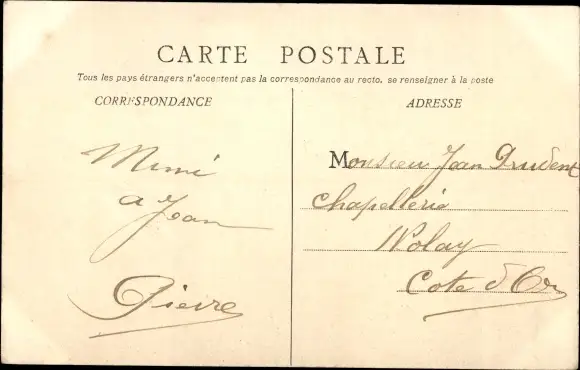 CARTE POSTALE
Tous les pays étrangers n'acceptent pas la correspondance au recto. se renseigner à la poste
CORRESPONDANCE
Mimi
a Jean
Pierre
ADRESSE
Monsieur Jean Prudent
chapellerie
Nolay
Cote d'Or